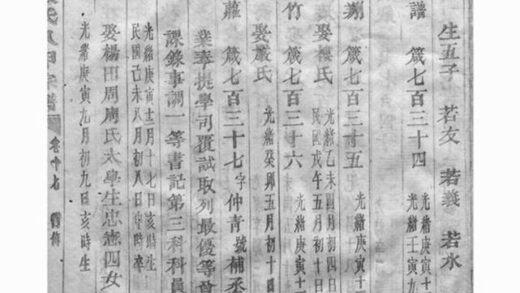 生五子 若友 若義 若水
譜 箴七百三十四
光緒庚寅十
光緒壬寅九
箴七百三十五
光緒庚寅十
娶樓氏
光緒乙未四月初四日
民國戊午五月初十日
竹 箴七百三十六
光緒庚寅十
娶嚴氏
光緒癸卯五月初十
箴七百三十七 字仲青 號補丞
業奉提學司覆試取列最優等
課錄事調一等書記第三科科員
光緒庚寅十二月十七日亥時生
民國己未八月初八日申時卒
娶楊田周周氏太學生忠憲四女
光緒庚寅九月初九日亥時生
卷十七